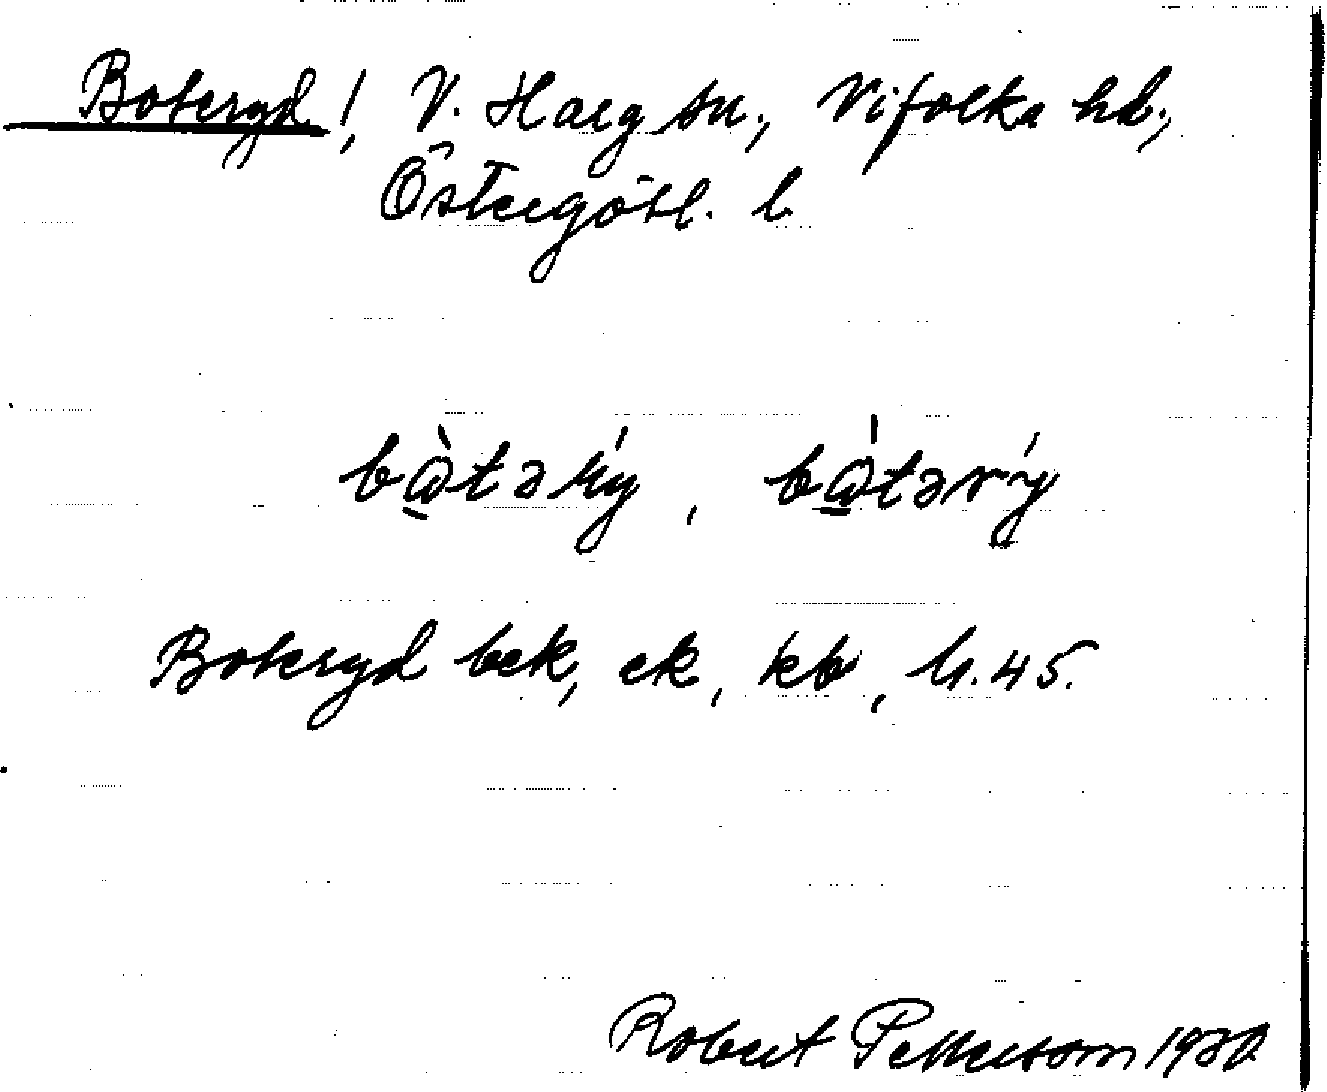 Botersyd!, V. Harg sn., Vifolka hd.,
Östergötl. l.
bàtəry̍, bàtərý
Boteryd bek, ek, kb, Ur. 45.
Robert Pettersson 1930